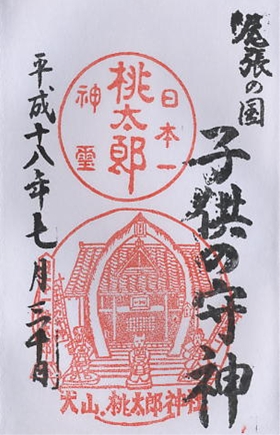 尾張の国
子供の守神
日本一
桃太郎
神霊
平成十八年七月三十日
犬山、桃太郎神社